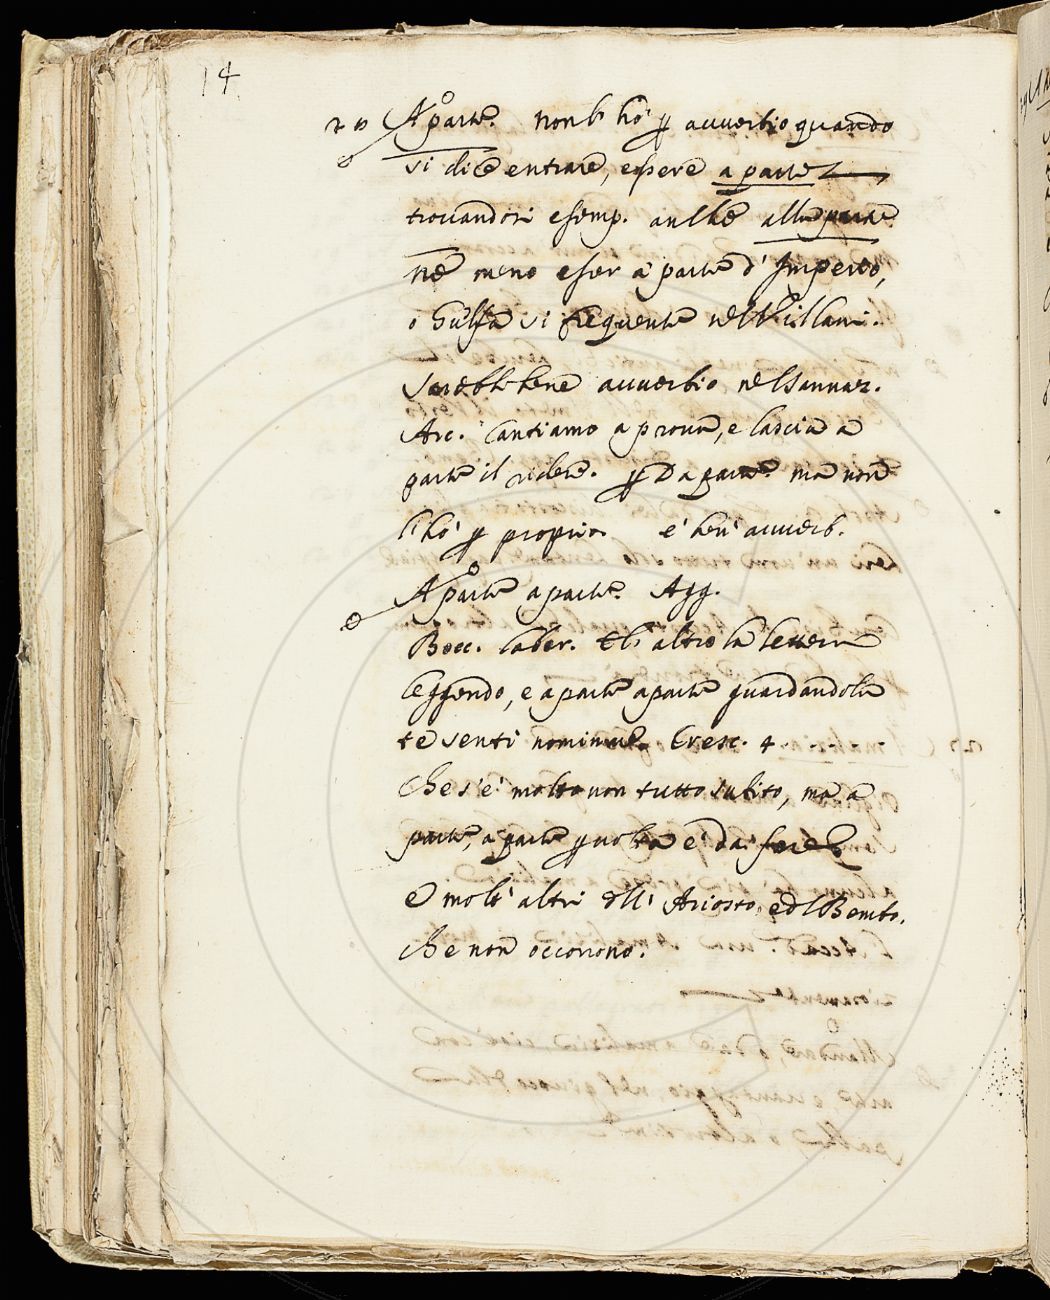 14
A parte. non l'hò p auuerbio quando
si dice entrare, essere a parte
trouandosi esemp. anche alla parte
nè meno esser à parte d'Imperio,
o Guelfa sì frequente nel Villani.
Sarebbe bene auuerbio nel Sannaz.
Arc. Cantiamo a proua, e lascia a
parte il ridere. p Da parte. ma non
l'hò p proprio. è ben' auuerb.
A parte a parte. Agg.
Bocc. Laber. E l'altro la lettera
leggendo, e a parte a parte guardandola
te senti nominare. Cresc. 4 . . . .
Che s'è molto non tutto subito, ma a
parte, a parte p uolta è da
E molt' altri dell' Ariosto, e del Bembo,
che non occorrono.